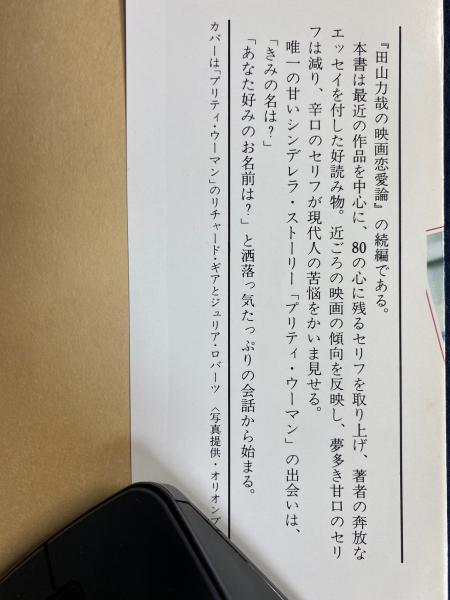 『田山力哉の映画恋愛論』の続編である。
本書は最近の作品を中心に、80の心に残るセリフを取り上げ、著者の奔放な
エッセイを付した好読み物。近ごろの映画の傾向を反映し、夢多き甘口のセリ
フは減り、辛口のセリフが現代人の苦悩をかいま見せる。
唯一の甘いシンデレラ・ストーリー「プリティ・ウーマン」の出会いは、
「きみの名は?」
「あなた好みのお名前は?」と洒落っ気たっぷりの会話から始まる。
カバーは「プリティ・ウーマン」のリチャード・ギアとジュリア・ロバーツ 〈写真提供・オリオンプ